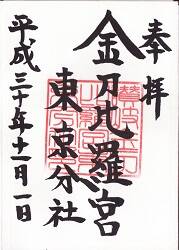 奉拝
金刀比羅宮
東京分社
平成三十年十一月一日